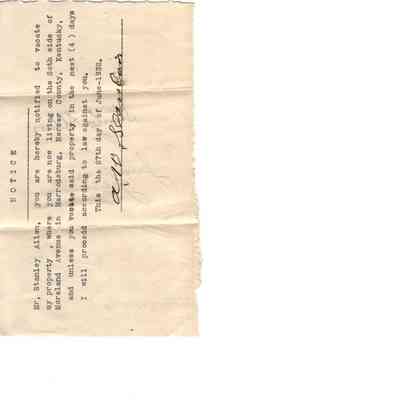 NOTICE
Mr. Stanley Allen, you are hereby notified to vacate
my property , where you are now living on the South side of
Moreland Avenue in Harrodsburg, Mercer County, Kentucky,
and unless you vacate said property in the next (4) days
I will proceed according to law against you.
This the 27th day of June-1932.